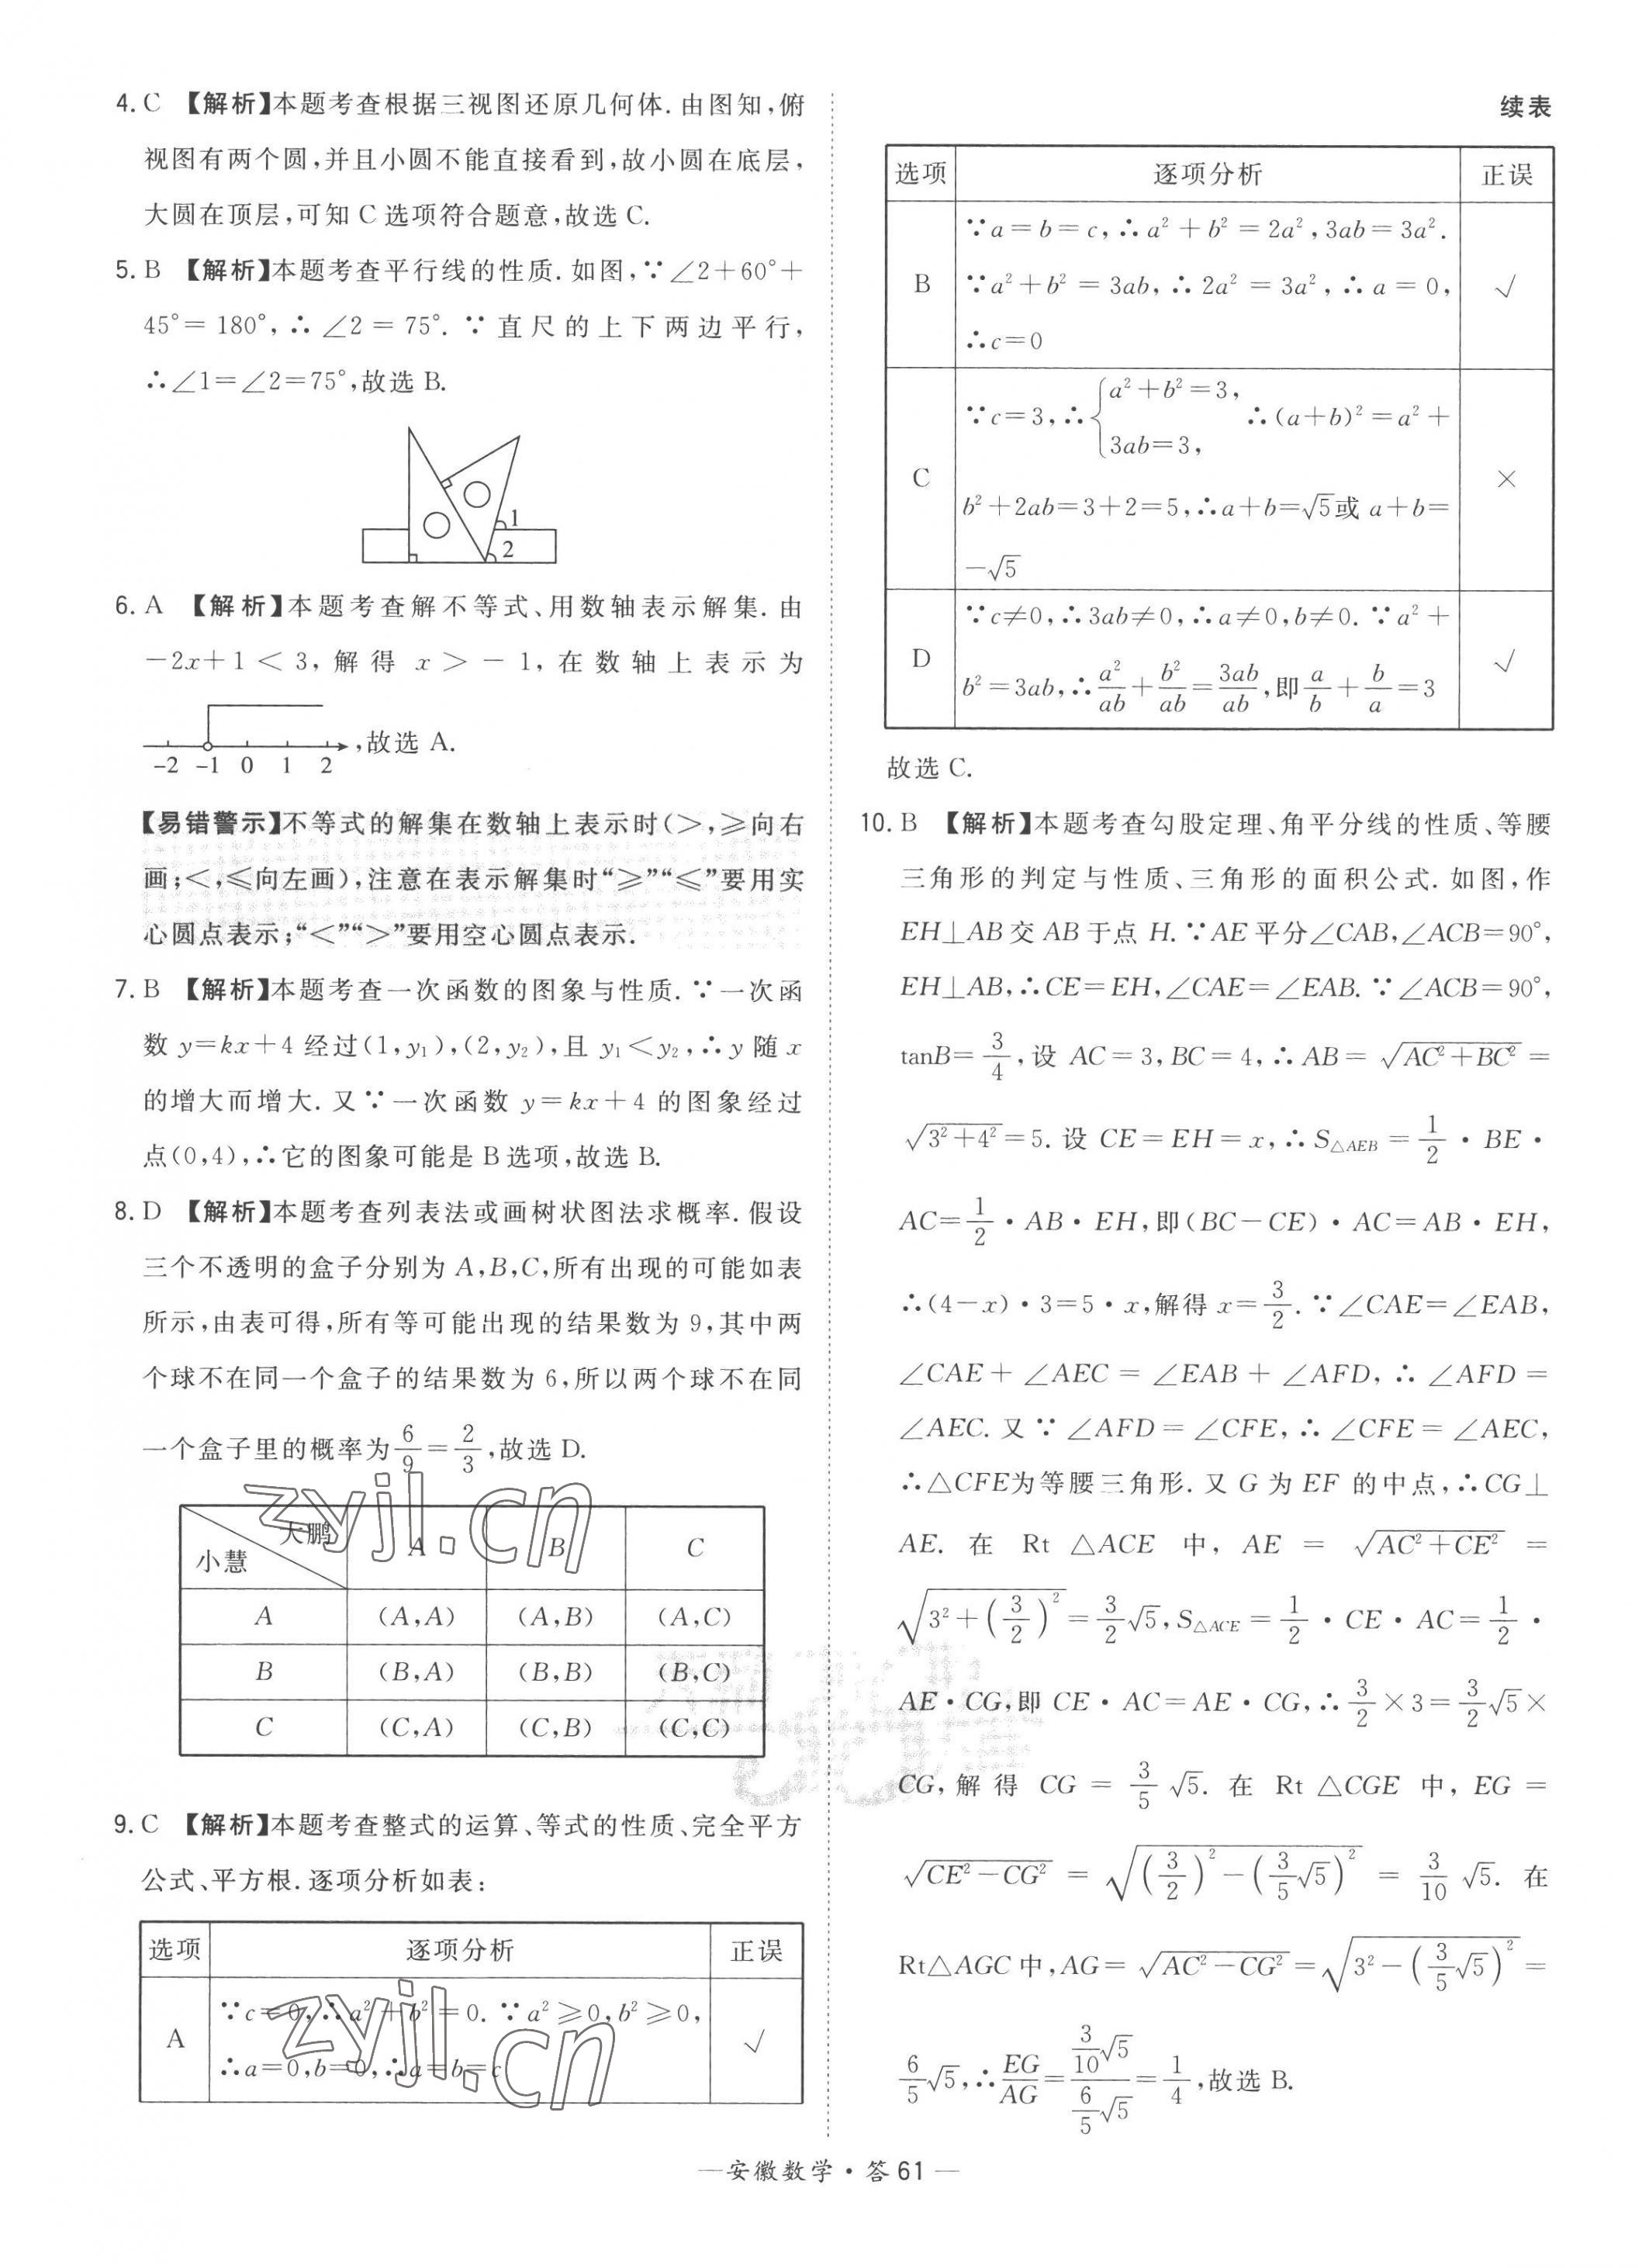 4. C 【解析】本题考查根据三视图还原几何体. 由图知,俯
视图有两个圆,并且小圆不能直接看到,故小圆在底层,
大圆在顶层,可知 C 选项符合题意,故选 C.
5. B 【解析】本题考查平行线的性质. 如图,∵∠2+60°+
45°=180°,∴∠2=75°. ∵直尺的上下两边平行,
∴∠1=∠2=75°,故选 B.
1
2
6. A 【解析】本题考查解不等式、用数轴表示解集. 由
-2x+1<3,解得 x>-1,在数轴上表示为
-2 -1 0 1 2 ,故选 A.
【易错警示】不等式的解集在数轴上表示时(>,≥向右
画;<,≤向左画),注意在表示解集时“≥”“≤”要用实
心圆点表示;“<”“>”要用空心圆点表示.
7. B 【解析】本题考查一次函数的图象与性质. ∵一次函
数 y=kx+4 经过(1,y₁),(2,y₂),且 y₁<y₂,∴y 随 x
的增大而增大. 又∵一次函数 y=kx+4 的图象经过
点(0,4),∴它的图象可能是 B 选项,故选 B.
8. D 【解析】本题考查列表法或画树状图法求概率. 假设
三个不透明的盒子分别为 A,B,C,所有出现的可能如表
所示,由表可得,所有等可能出现的结果数为 9,其中两
个球不在同一个盒子的结果数为 6,所以两个球不在同
一个盒子里的概率为6/9=2/3,故选 D.
小慧 大鹏 A B C
A (A,A) (A,B) (A,C)
B (B,A) (B,B) (B,C)
C (C,A) (C,B) (C,C)
zyjl.cn
9. C 【解析】本题考查整式的运算、等式的性质、完全平方
公式、平方根. 逐项分析如表:
选项 逐项分析 正误
A ∵c=0,∴a²+b²=0. ∵a²≥0,b²≥0, √
∴a=0,b=0,∴a=b=c
zyjl.cn
续表
选项 逐项分析 正误
∵a=b=c,∴a²+b²=2a²,3ab=3a².
B ∵a²+b²=3ab,∴2a²=3a²,∴a=0, √
∴c=0
∵c=3,∴{a²+b²=3, 3ab=3, ∴(a+b)²=a²+
C ×
b²+2ab=3+2=5,∴a+b=√5或 a+b=
-√5
∵c≠0,∴3ab≠0,∴a≠0,b≠0. ∵a²+
D √
b²=3ab,∴a²/ab+b²/ab=3ab/ab,即a/b+b/a=3
故选 C.
10. B 【解析】本题考查勾股定理、角平分线的性质、等腰
三角形的判定与性质、三角形的面积公式. 如图,作
EH⊥AB 交 AB 于点 H. ∵AE 平分∠CAB,∠ACB=90°,
EH⊥AB,∴CE=EH,∠CAE=∠EAB. ∵∠ACB=90°,
tanB=3/4,设 AC=3,BC=4,∴AB=√(AC²+BC²)=
√(3²+4²)=5. 设 CE=EH=x,∴S△AEB=1/2·BE·
AC=1/2·AB·EH,即(BC-CE)·AC=AB·EH,
∴(4-x)·3=5·x,解得 x=3/2. ∵∠CAE=∠EAB,
∠CAE+∠AEC=∠EAB+∠AFD,∴∠AFD=
∠AEC. 又∵∠AFD=∠CFE,∴∠CFE=∠AEC,
∴△CFE为等腰三角形. 又 G 为 EF 的中点,∴CG⊥
AE. 在 Rt△ACE 中,AE=√(AC²+CE²)=
√(3²+(3/2)²)=3/2√5,S△ACE=1/2·CE·AC=1/2·
AE·CG,即 CE·AC=AE·CG,∴3/2×3=3/2√5×
CG,解得 CG=3/5√5. 在 Rt△CGE 中,EG=
√(CE²-CG²)=√((3/2)²-(3/5√5)²)=3/10√5. 在
Rt△AGC 中,AG=√(AC²-CG²)=√(3²-(3/5√5)²)=
6/5√5,∴EG/AG=(3/10√5)/(6/5√5)=1/4,故选 B.
—安徽数学·答61—